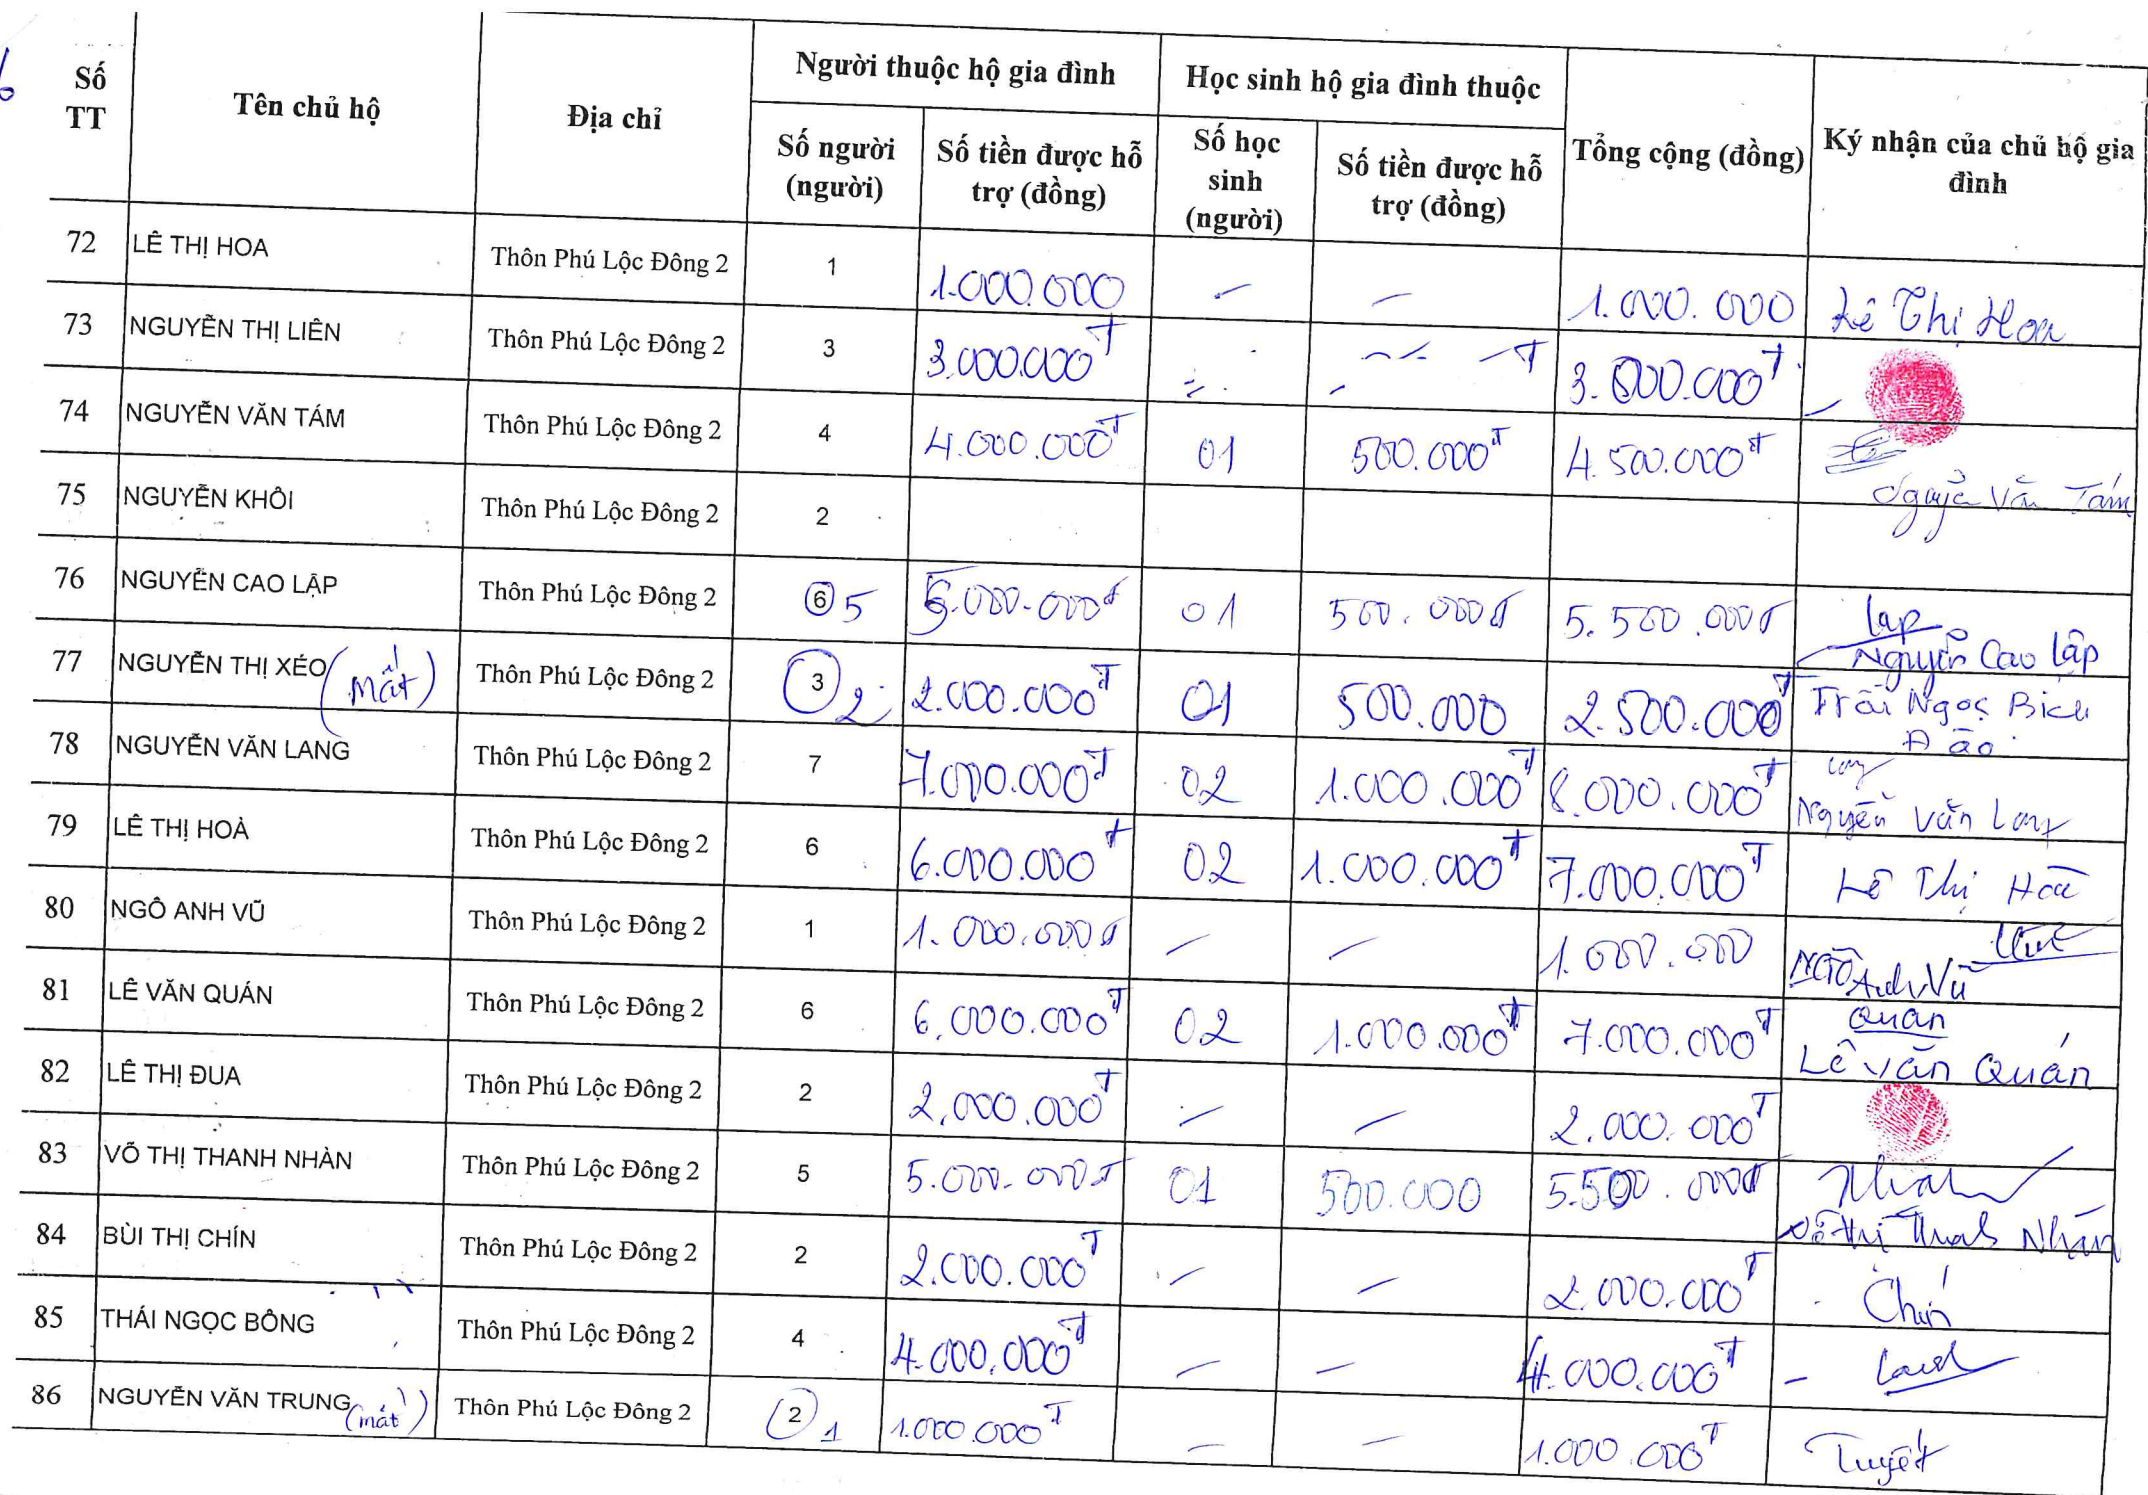 Số TT
Tên chủ hộ
Địa chỉ
Người thuộc hộ gia đình
Học sinh hộ gia đình thuộc
Số người (người)
Số tiền được hỗ trợ (đồng)
Số học sinh (người)
Số tiền được hỗ trợ (đồng)
Tổng cộng (đồng)
Ký nhận của chủ hộ gia đình
72 LÊ THỊ HOA Thôn Phú Lộc Đông 2 1 1.000.000 - - 1.000.000 Lê Thị Hoa
73 NGUYỄN THỊ LIÊN Thôn Phú Lộc Đông 2 3 3.000.000đ 3.000.000đ
74 NGUYỄN VĂN TÁM Thôn Phú Lộc Đông 2 4 4.000.000đ 01 500.000đ 4.500.000đ
Nguyễn Văn Tám
75 NGUYỄN KHÔI Thôn Phú Lộc Đông 2 2
76 NGUYỄN CAO LẬP Thôn Phú Lộc Đông 2 6 5 5.000.000đ 01 500.000đ 5.500.000đ lập
Nguyễn Cao Lập
77 NGUYỄN THỊ XÉO (mất) Thôn Phú Lộc Đông 2 3 2 2.000.000đ 01 500.000 2.500.000đ Ngọc Bích
Đào
78 NGUYỄN VĂN LANG Thôn Phú Lộc Đông 2 7 7.000.000đ 02 1.000.000đ 8.000.000đ
Nguyễn Văn Lang
79 LÊ THỊ HOÀ Thôn Phú Lộc Đông 2 6 6.000.000đ 02 1.000.000đ 7.000.000đ Lê Thị Hoà
80 NGÔ ANH VŨ Thôn Phú Lộc Đông 2 1 1.000.000đ - - 1.000.000
Ngô Anh Vũ
81 LÊ VĂN QUÁN Thôn Phú Lộc Đông 2 6 6.000.000đ 02 1.000.000đ 7.000.000đ Quán
Lê Văn Quán
82 LÊ THỊ ĐUA Thôn Phú Lộc Đông 2 2 2.000.000đ - - 2.000.000đ
83 VÕ THỊ THANH NHÀN Thôn Phú Lộc Đông 2 5 5.000.000đ 01 500.000 5.500.000đ Nhàn
Võ Thị Thanh Nhàn
84 BÙI THỊ CHÍN Thôn Phú Lộc Đông 2 2 2.000.000đ - - 2.000.000đ Chín
85 THÁI NGỌC BÔNG Thôn Phú Lộc Đông 2 4 4.000.000đ - - 4.000.000đ
86 NGUYỄN VĂN TRUNG (mất) Thôn Phú Lộc Đông 2 2 1 1.000.000đ - - 1.000.000đ Tuyết